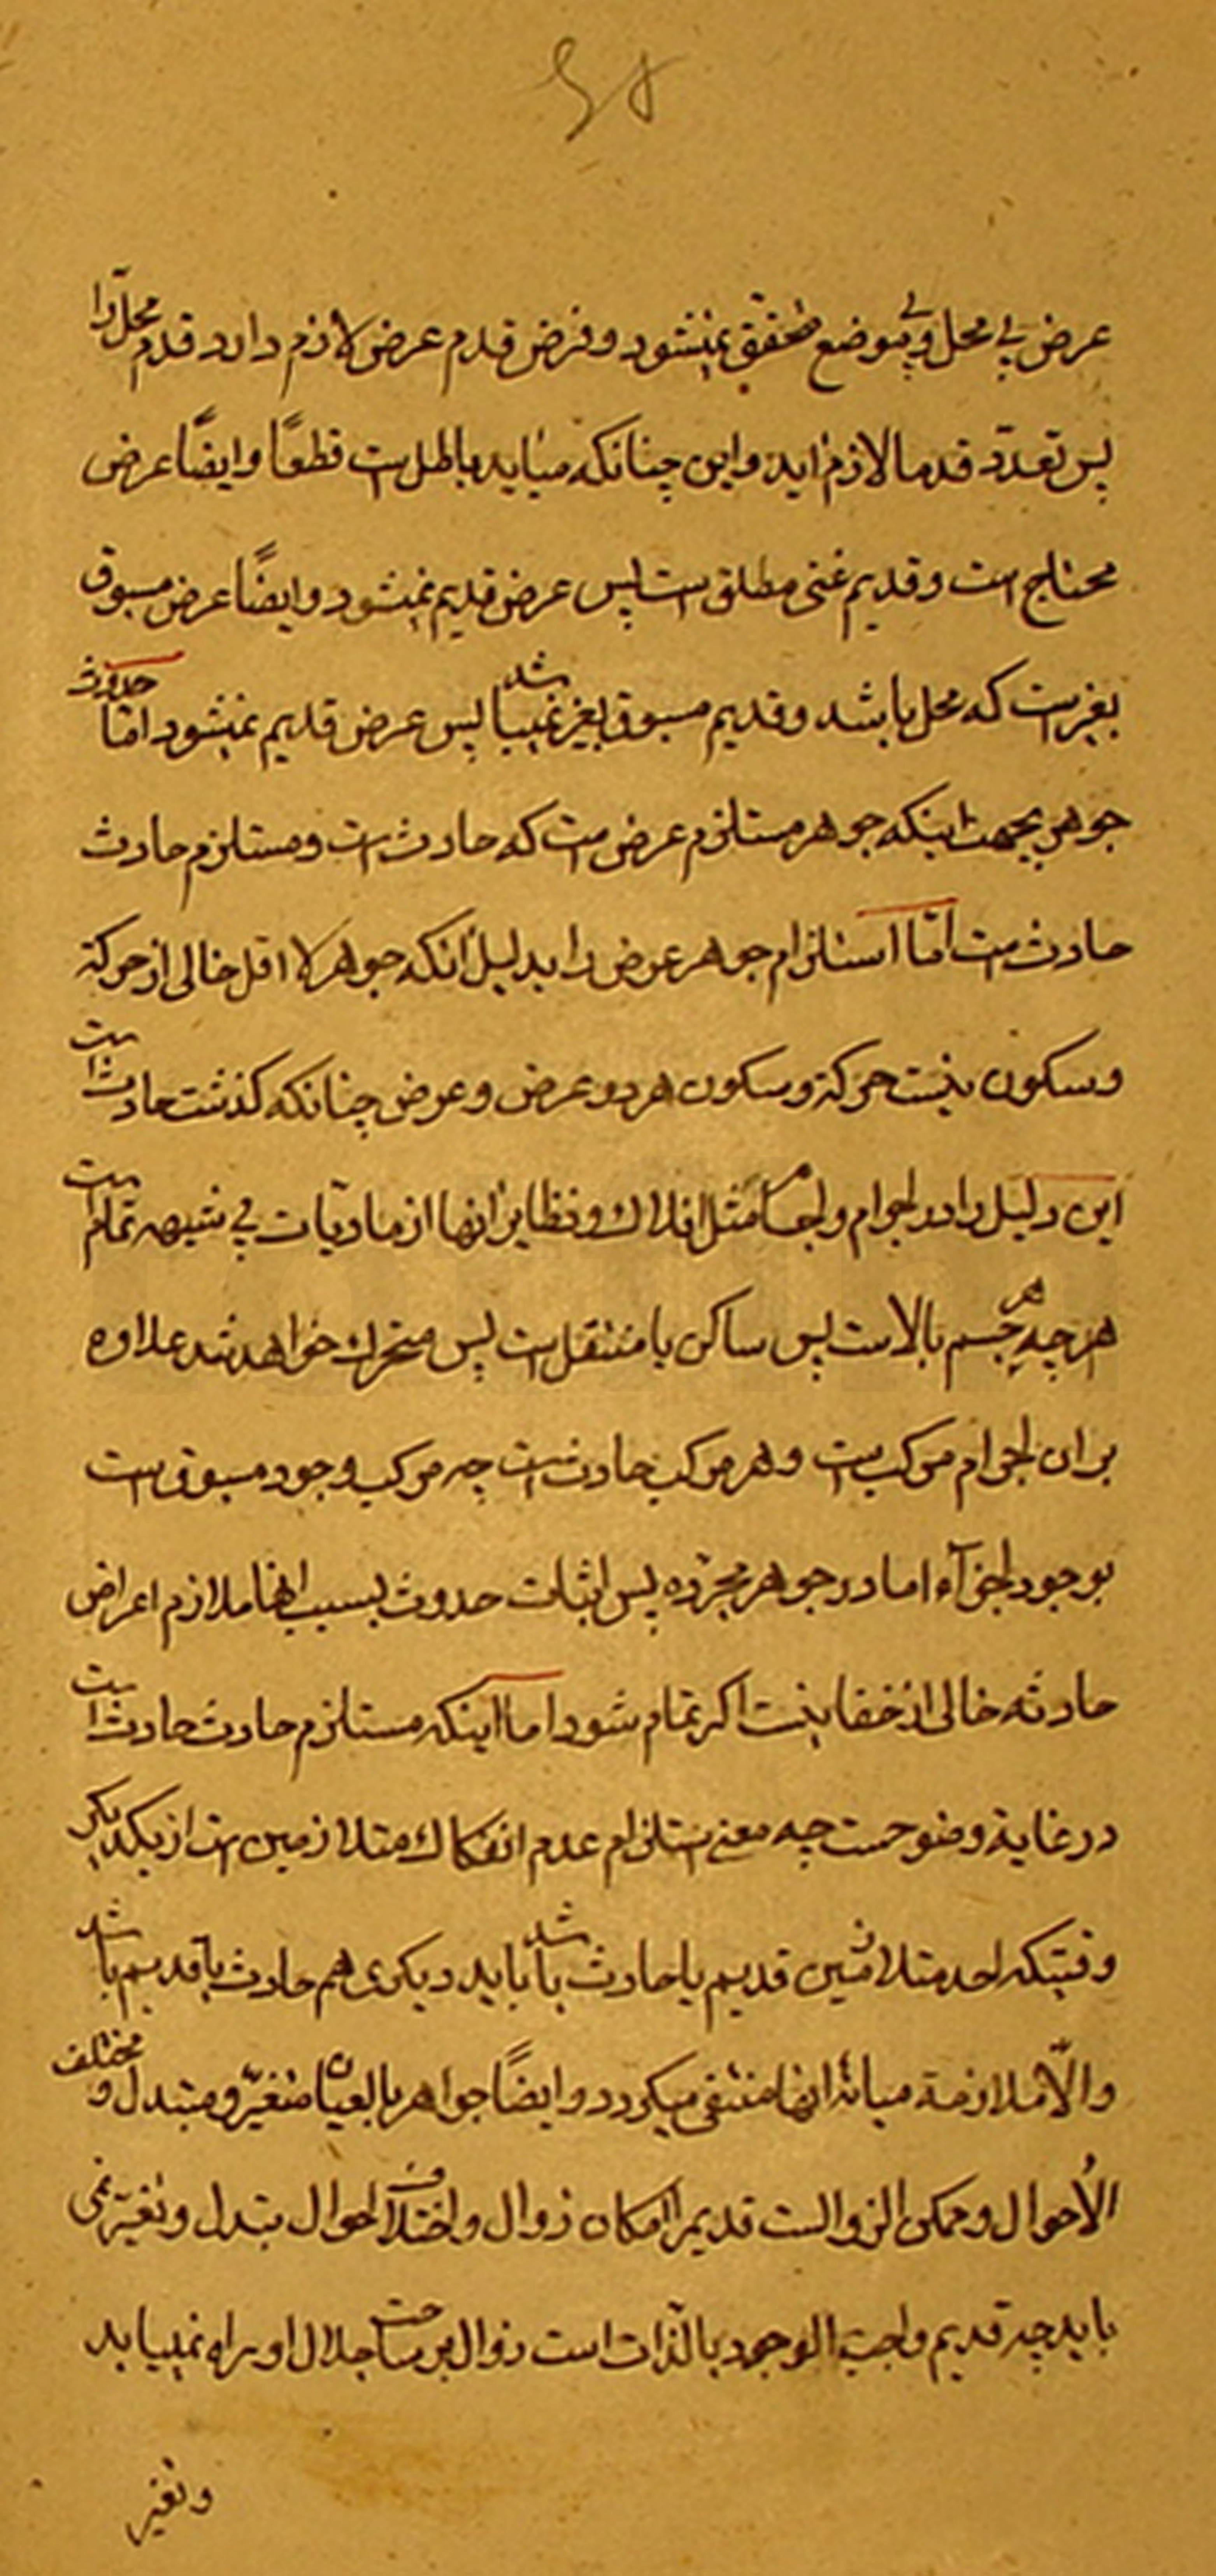 ۴۵
عرض بی محل و بی موضع محقق نمیشود و فرض قدم عرض لازم دارد قدم محل را
پس تعدّد قدما لازم اید و این چنانکه میاید باطل است قطعًا و ایضًا عرض
محتاج است و قدیم غنی مطلق است پس عرض قدیم نمیشود و ایضًا عرض مسبوق
بغیر است که محل باشد و قدیم مسبوق بغیر نمیباشد پس عرض قدیم نمیشود امّا حدوث
جوهر بجهت اینکه جوهر مستلزم عرض است که حادث است و مستلزم حادث
حادث است امّا استلزام جوهر عرض را بدلیل انکه جوهر لا اقل خالی از حرکة
و سکون نیست حرکة و سکون هر دو عرض و عرض چنانکه کذشت حادث است
این دلیل را در اجرام و اجسام مثل افلاک و نظایر انها از مادیّات بی شبهه تمام است
هر چه جسم بالاست پس ساکن یا منتقل است پس متحرک خواهد شد علاوه
بر ان اجرام مرکب است و هر مرکب حادث است چه مرکب وجود مسبوق است
بوجود اجزآء اما در جوهر مجرّده پس اثبات حدوث بسبب انها ملازم اعراض
حادثه خالی از خفا نیست اکر تمام شود اما اینکه مستلزم حادث حادث است
در غایة وضوحست چه معنی استلزام عدم انفکاک متلازمین است از یکدیکر
وقتیکه احد متلازمین قدیم یا حادث باشد باید دیکری هم حادث یا قدیم باشد
و الّا ملازمة میانهٔ انها منتفی میکردد و ایضًا جواهر بالعیان متغیّر و متبدل و مختلف
الاحوال و ممکن الزوالست قدیم را امکان زوال و اختلاف احوال تبدل و تغیّر نمی
باید چه قدیم واجب الوجود بالذّات است زوال بر ساحت جلال او راه نمییابد
و تغیر